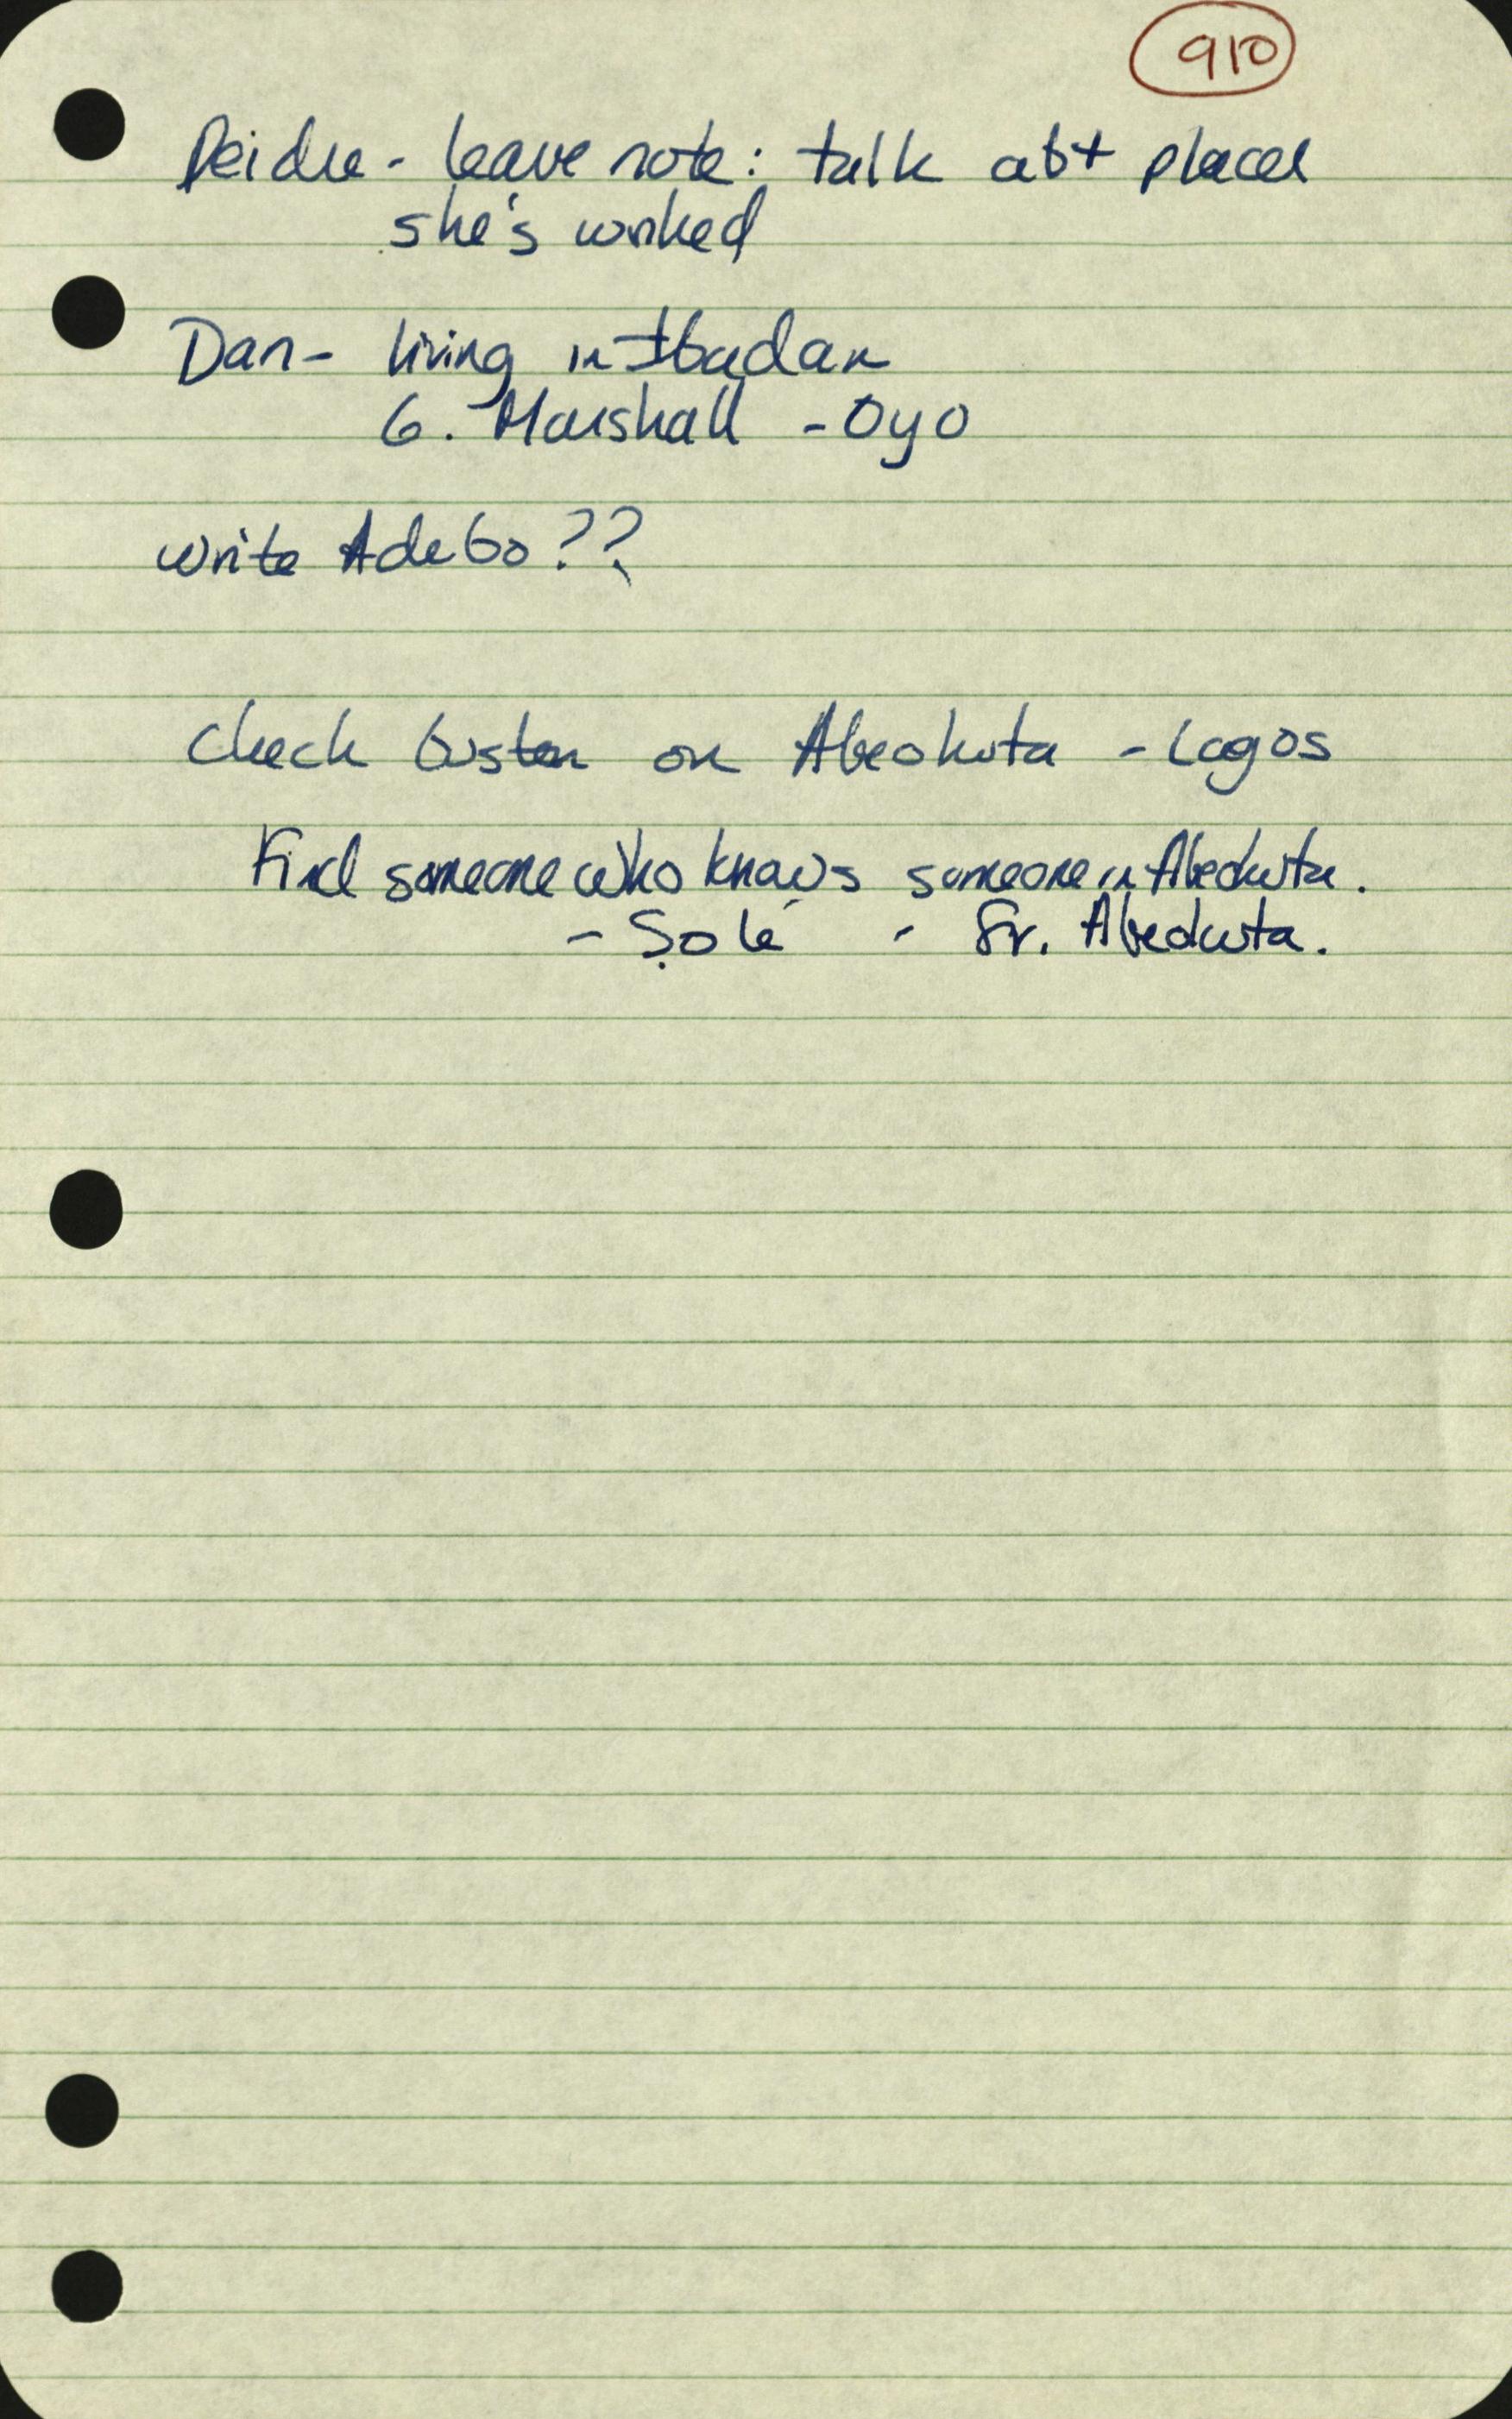 910
Deidre - leave note: talk abt places
she's worked
Dan - living in Ibadan
G. Marshall - Oyo
write Adebo??
Check Guston on Abeokuta - Lagos
Find someone who knows someone in Abeokuta.
- Ṣolé - Fr. Abeokuta.